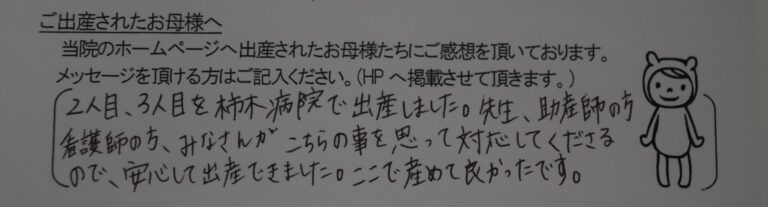 ご出産されたお母様へ
当院のホームページへ出産されたお母様たちにご感想を頂いております。
メッセージを頂ける方はご記入ください。(HPへ掲載させて頂きます。)
2人目、3人目を柿木病院で出産しました。先生、助産師の方
看護師の方、みなさんがこちらの事を思って対応してくださる
ので、安心して出産できました。ここで産めて良かったです。